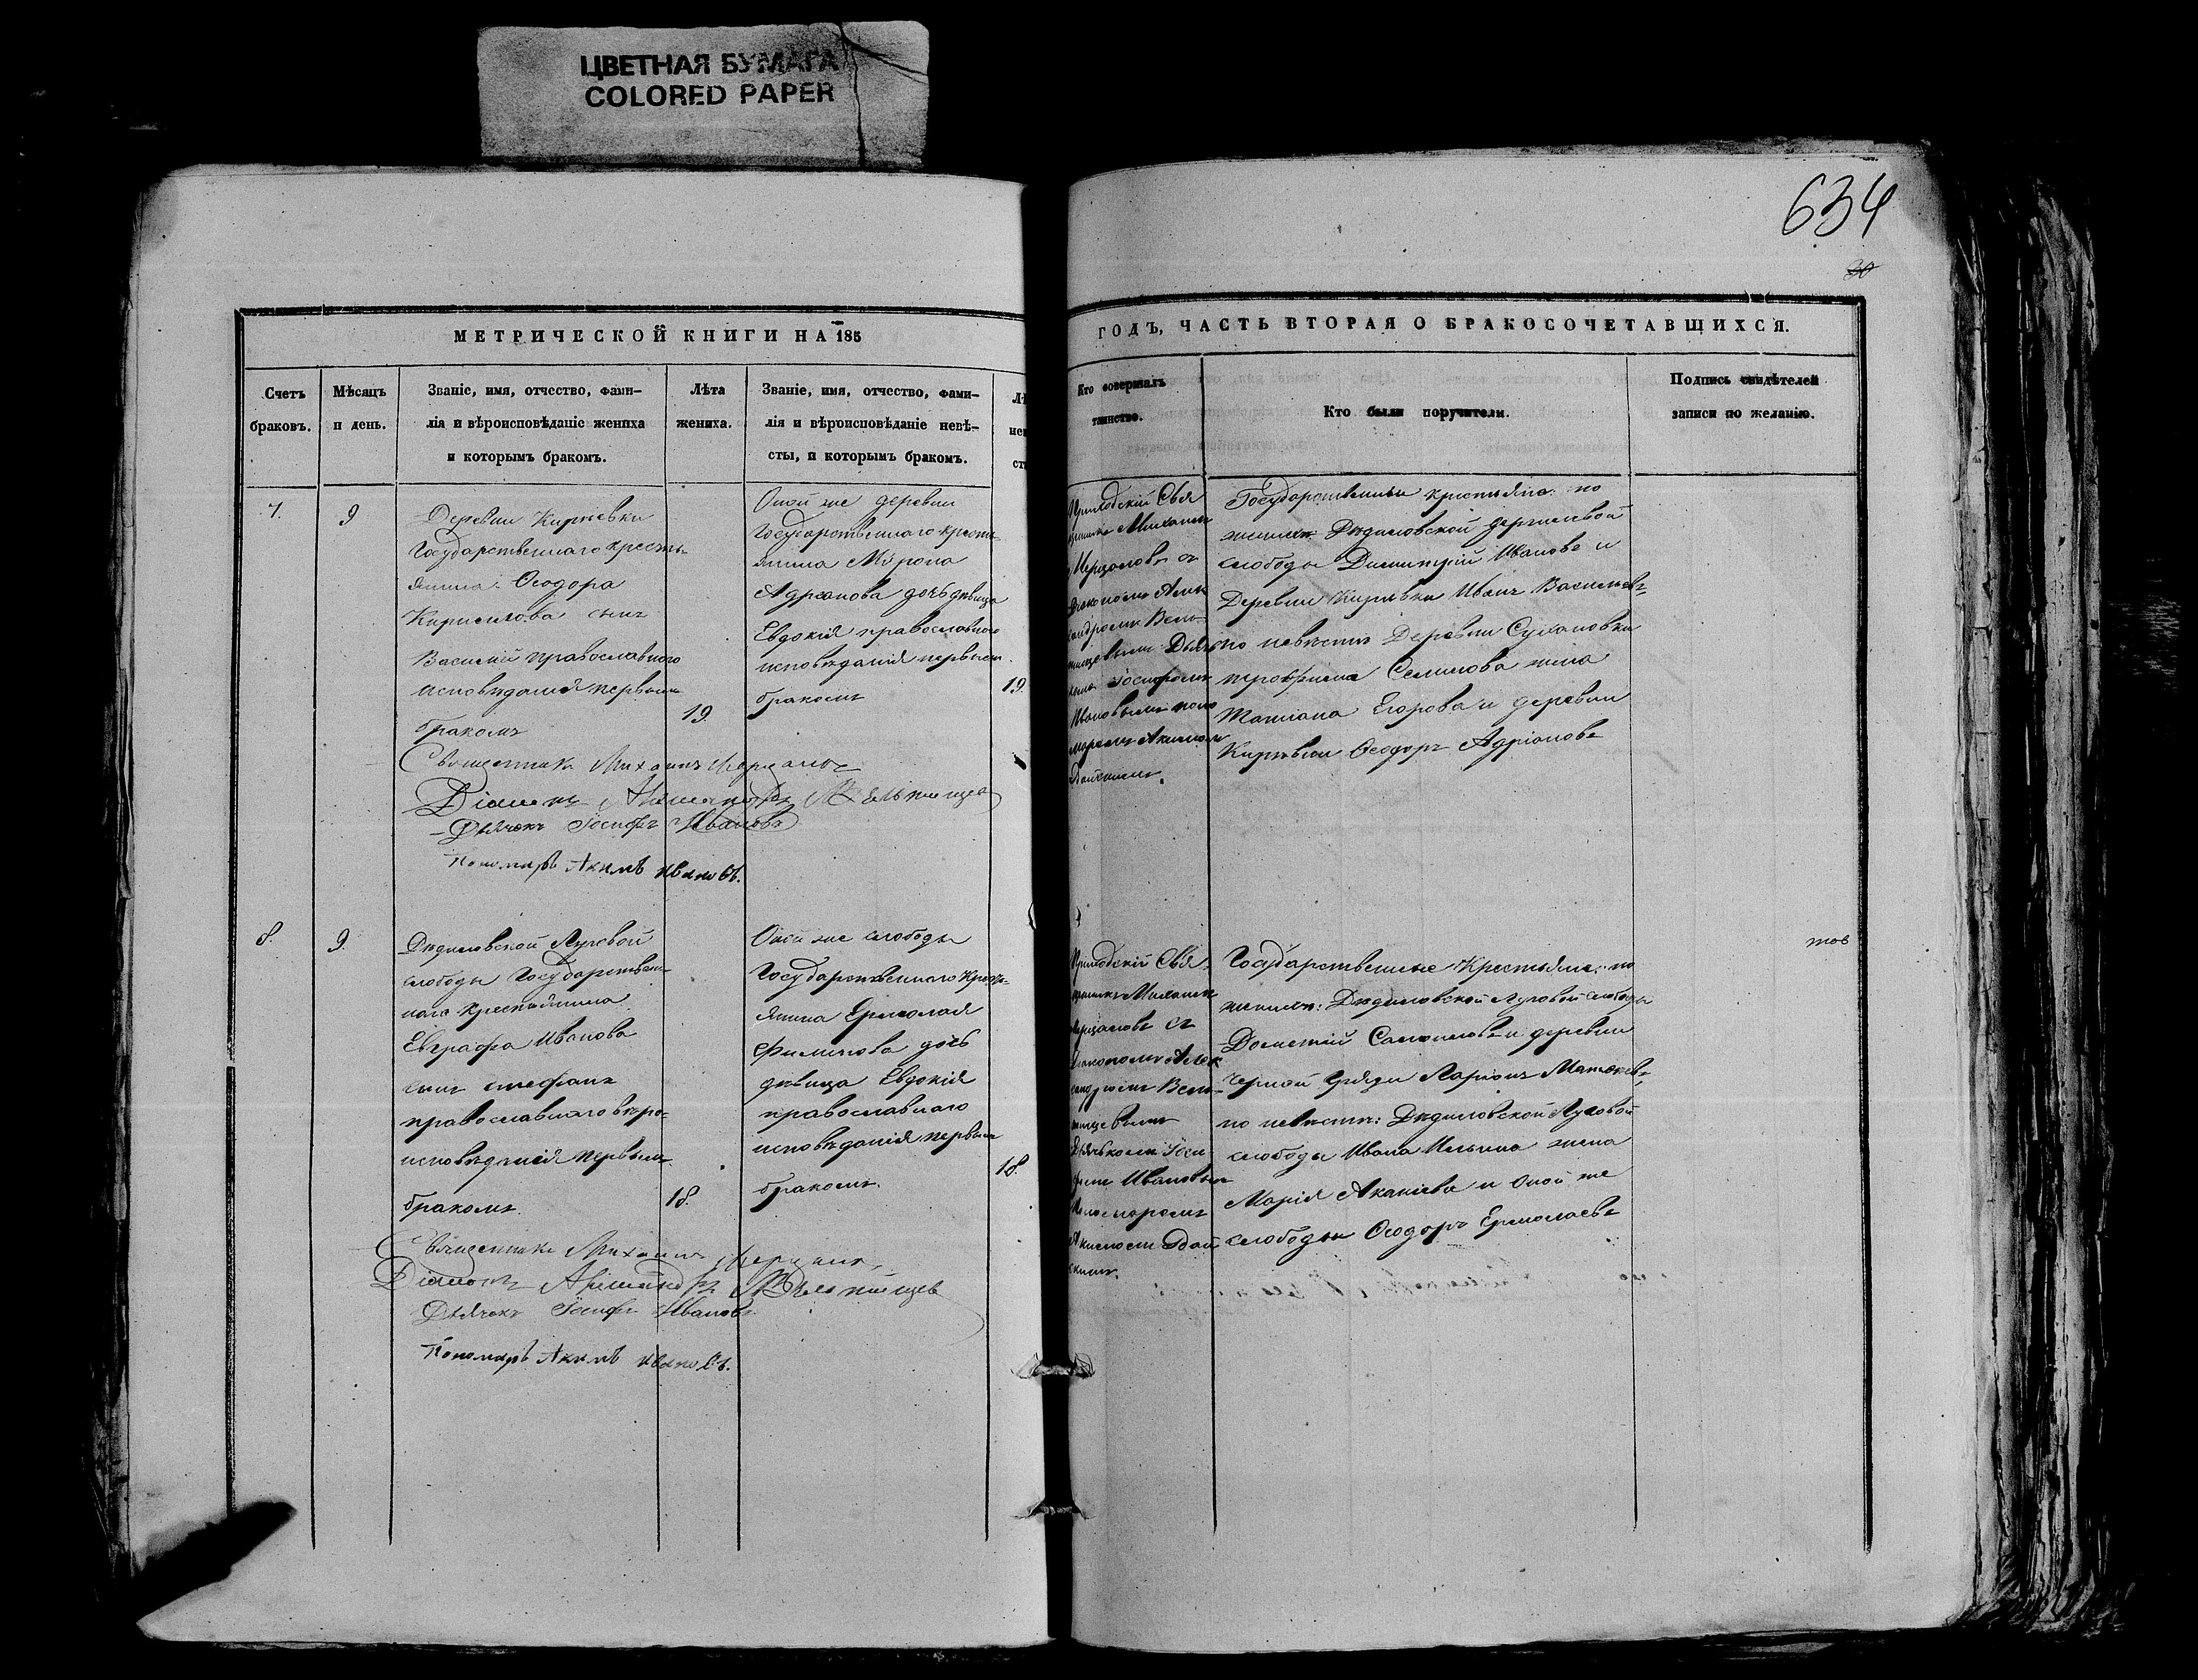 ЦВЕТНАЯ БУМАГА
COLORED PAPER
634
30
МЕТРИЧЕСКОЙ КНИГИ НА 185
Счетъ
браковъ.
Мѣсяцъ
и день.
Званіе, имя, отчество, фами-
лія и вѣроисповѣданіе жениха
и которымъ бракомъ.
Лѣта
жениха.
Званіе, имя, отчество, фами-
лія и вѣроисповѣданіе невѣ-
сты, и которымъ бракомъ.
7.
9
Деревни Кирѣевки
Государственнаго кресть-
янина Ѳеодора
Кирилова сынъ
Василій православнаго
исповѣданія первымъ
бракомъ
19.
Оной же деревни
Государственнаго кресть-
янина Мѵрона
Адріанова дочь дѣвица
Евдокія православнаго
исповѣданія первымъ
бракомъ
19.
Священникъ Михаилъ
Діаконъ Александръ
Дьячекъ Іосифъ Ивановъ
Пономарь Акимъ Ивановъ.
8.
9.
Дѣдиловской Луговой
слободы Государствен-
наго крестьянина
Евграфа Иванова
сынъ Стефанъ
православнаго вѣро-
исповѣданія первымъ
бракомъ.
18.
Оной же слободы
Государственнаго крест-
янина Ермолая
Филипова дочь
дѣвица Евдокія
православнаго
исповѣданія первымъ
бракомъ.
18.
Священникъ Михаилъ
Діаконъ Александръ
Дьячекъ Іосифъ Ивановъ
Пономарь Акимъ Ивановъ.
ГОДЪ, ЧАСТЬ ВТОРАЯ О БРАКОСОЧЕТАВШИХСЯ.
Кто совершалъ
таинство.
Кто были поручители.
Подпись свидѣтелей
записи по желанію.
Приходскій Свя
Михаилъ
Іосифомъ
Ивановымъ поно
маремъ Акимомъ
Государственные крестьяне: по
женихѣ Дѣдиловской
слободы Димитрій Ивановъ и
Деревни Кирѣевки Иванъ Васильевъ,
по невѣстѣ Деревни Сухановки
Семенова жена
Татіана Егорова и деревни
Кирѣевки Ѳеодоръ Адріановъ
Приходскій Свя
Михаилъ
Ивановым
Государственные Крестьяне: по
женихѣ: Дѣдиловской Луговой слободы
и деревни
Черной Гряди Ларіонъ
по невѣстѣ: Дѣдиловской Луговой
слободы Ивана Ильина жена
Марія Акакіева и Оной же
слободы Ѳеодоръ Ермолаевъ
тов